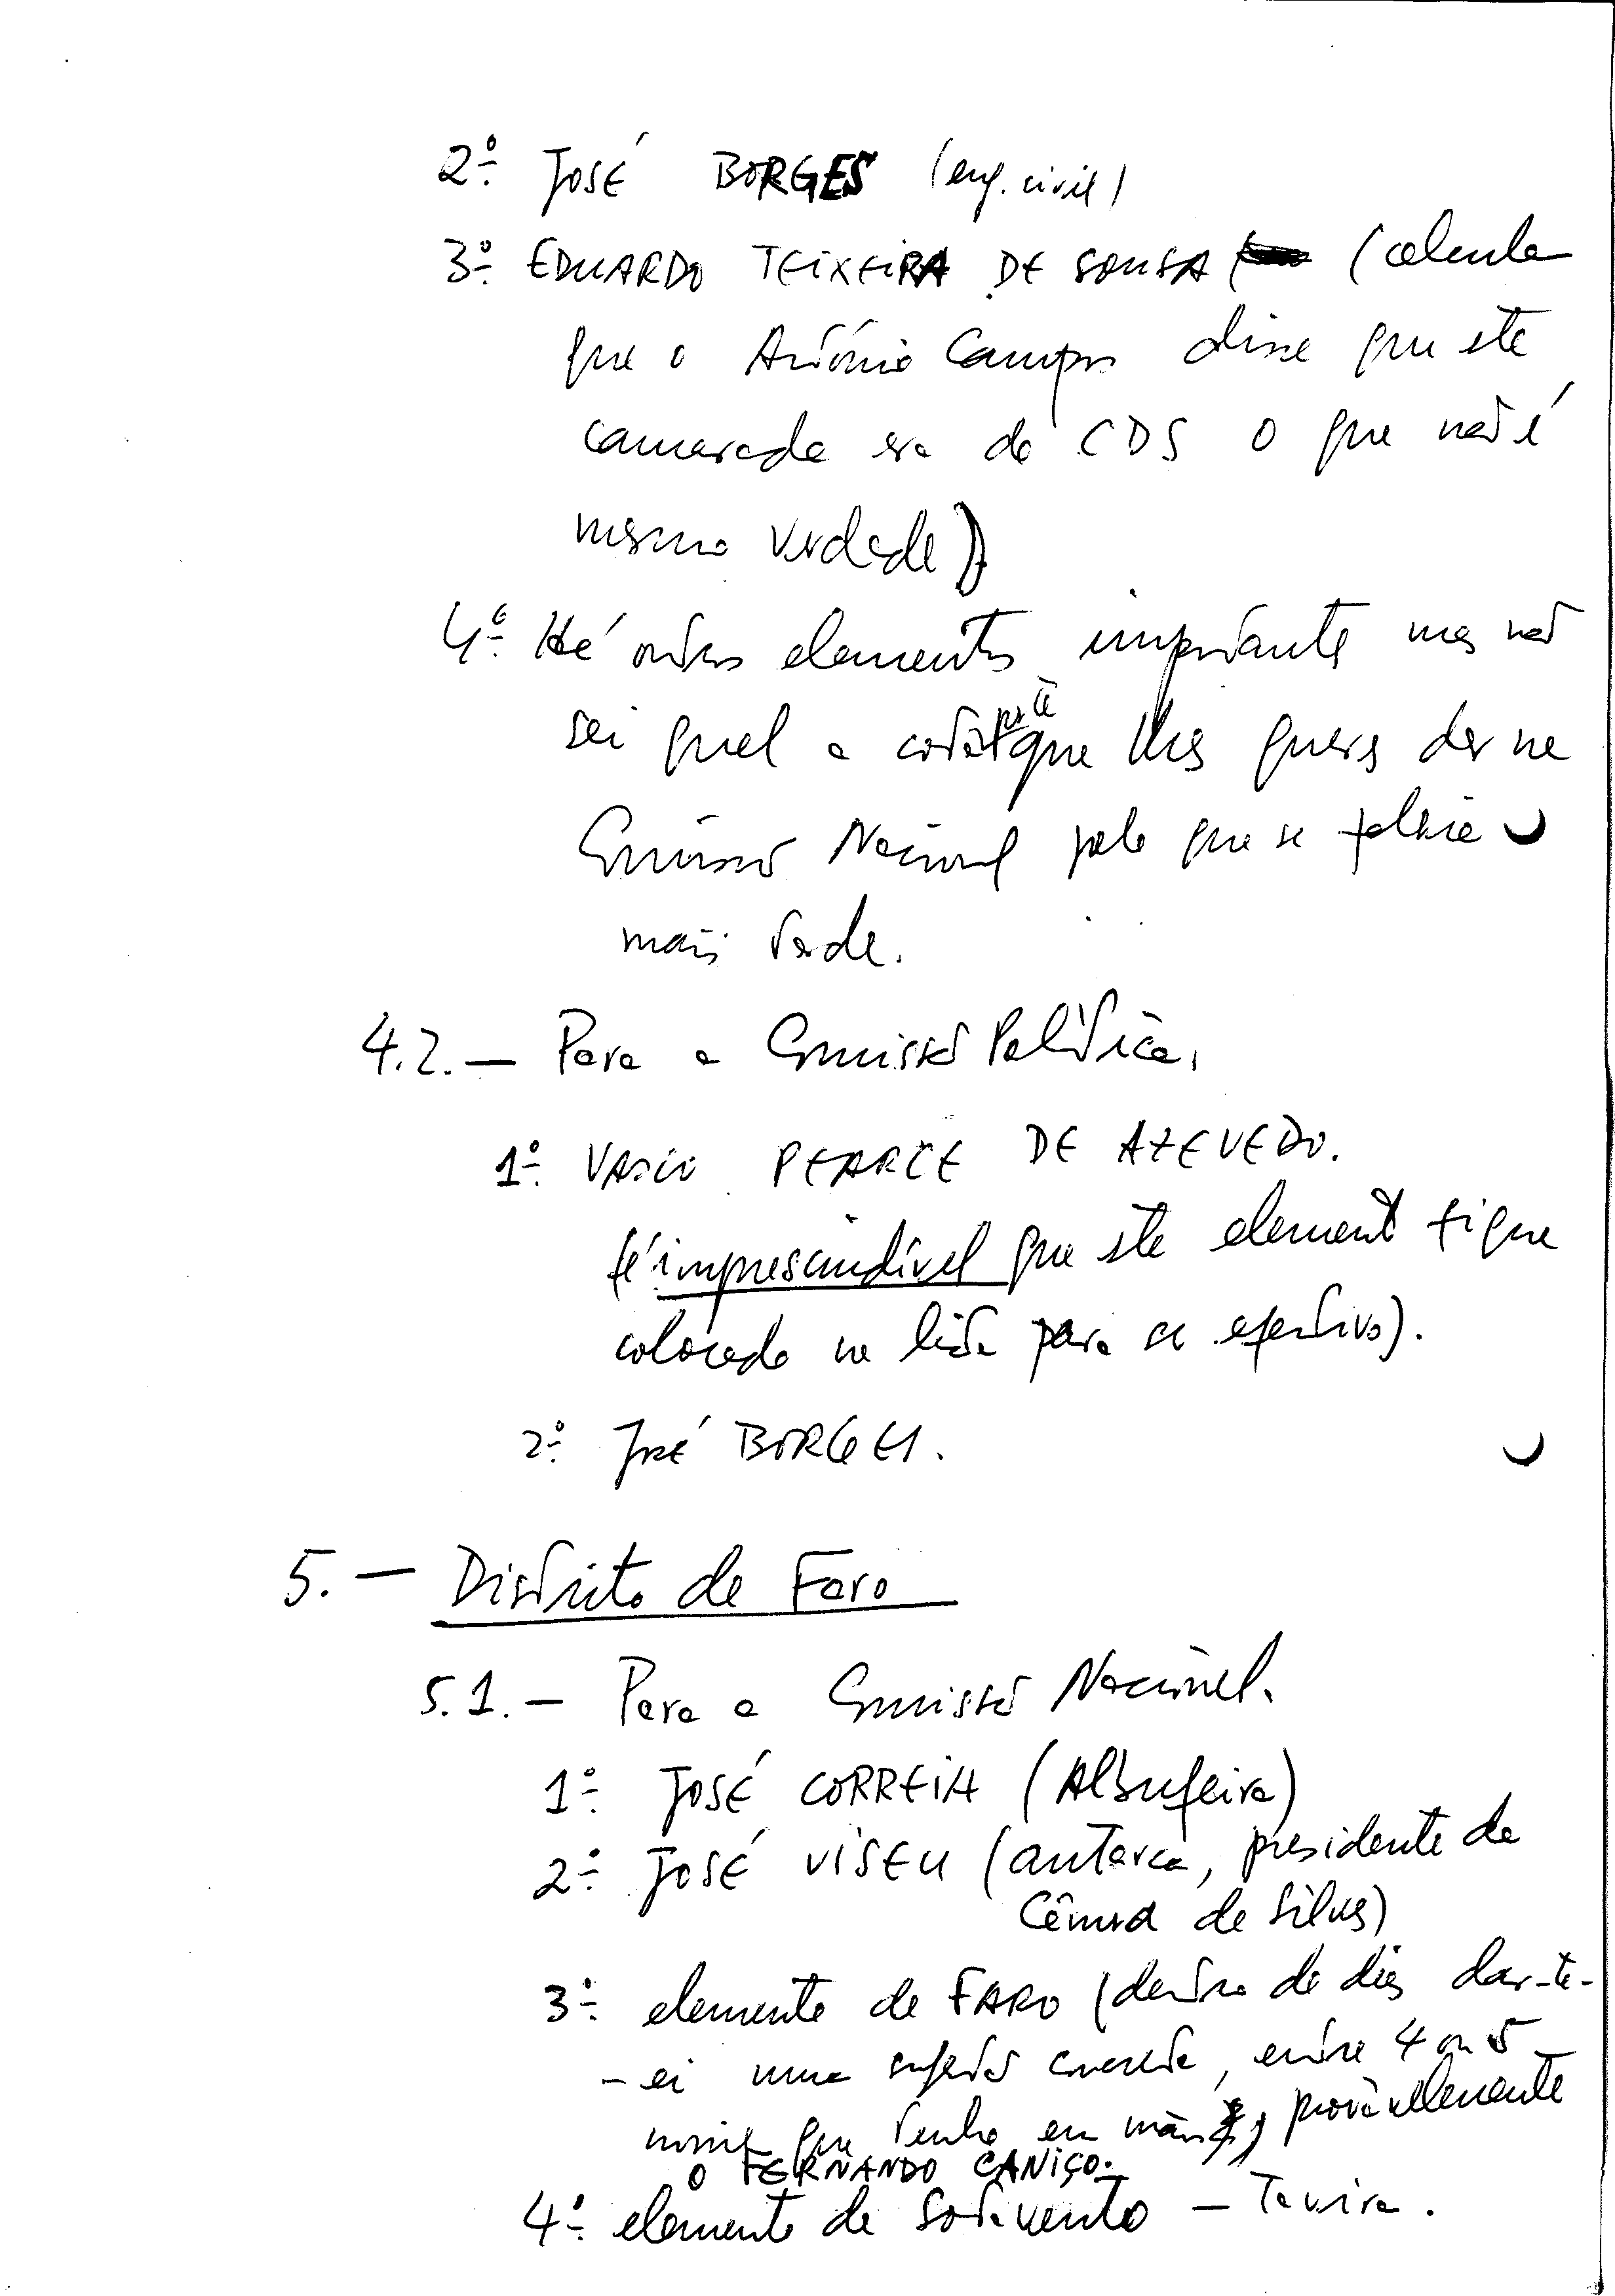 2º. JOSÉ BORGES (eng. civil)
3º. EDUARDO TEIXEIRA DE SOUSA (calcula
que o António Campos disse que este
camarada era do CDS o que não é
mesmo verdade)
4º. Há outros elementos importantes mas não
sei qual a que lhes queres dar na
Comissão Nacional pelo que se falaria
mais tarde.
4.2. — Para a Comissão Política.
1º. VASCO PEARCE DE AZEVEDO.
(é imprescindível que este elemento fique
colocado na lista para ser efectivo).
2º. JOSÉ BORGES.
5. — Distrito de Faro
5.1. — Para a Comissão Nacional.
1º. JOSÉ CORREIA (Albufeira)
2º. JOSÉ VISEU (autarca, presidente da
Câmara de Silves)
3º. elemento de FARO (dentro de dias dar-te-
-ei uma sugestão concreta, entre 4 ou 5
nomes que tenho em mãos, provavelmente
o FERNANDO CANIÇO.
4º. elemento de Sotavento — Tavira.